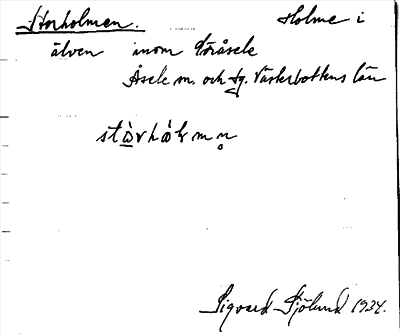 Storholmen. Holme i
älven inom Toråsele
Åsele sn. och tg. Västerbottens län
stò̱rhòlmn̥
Sigvard Sjölund 1934.